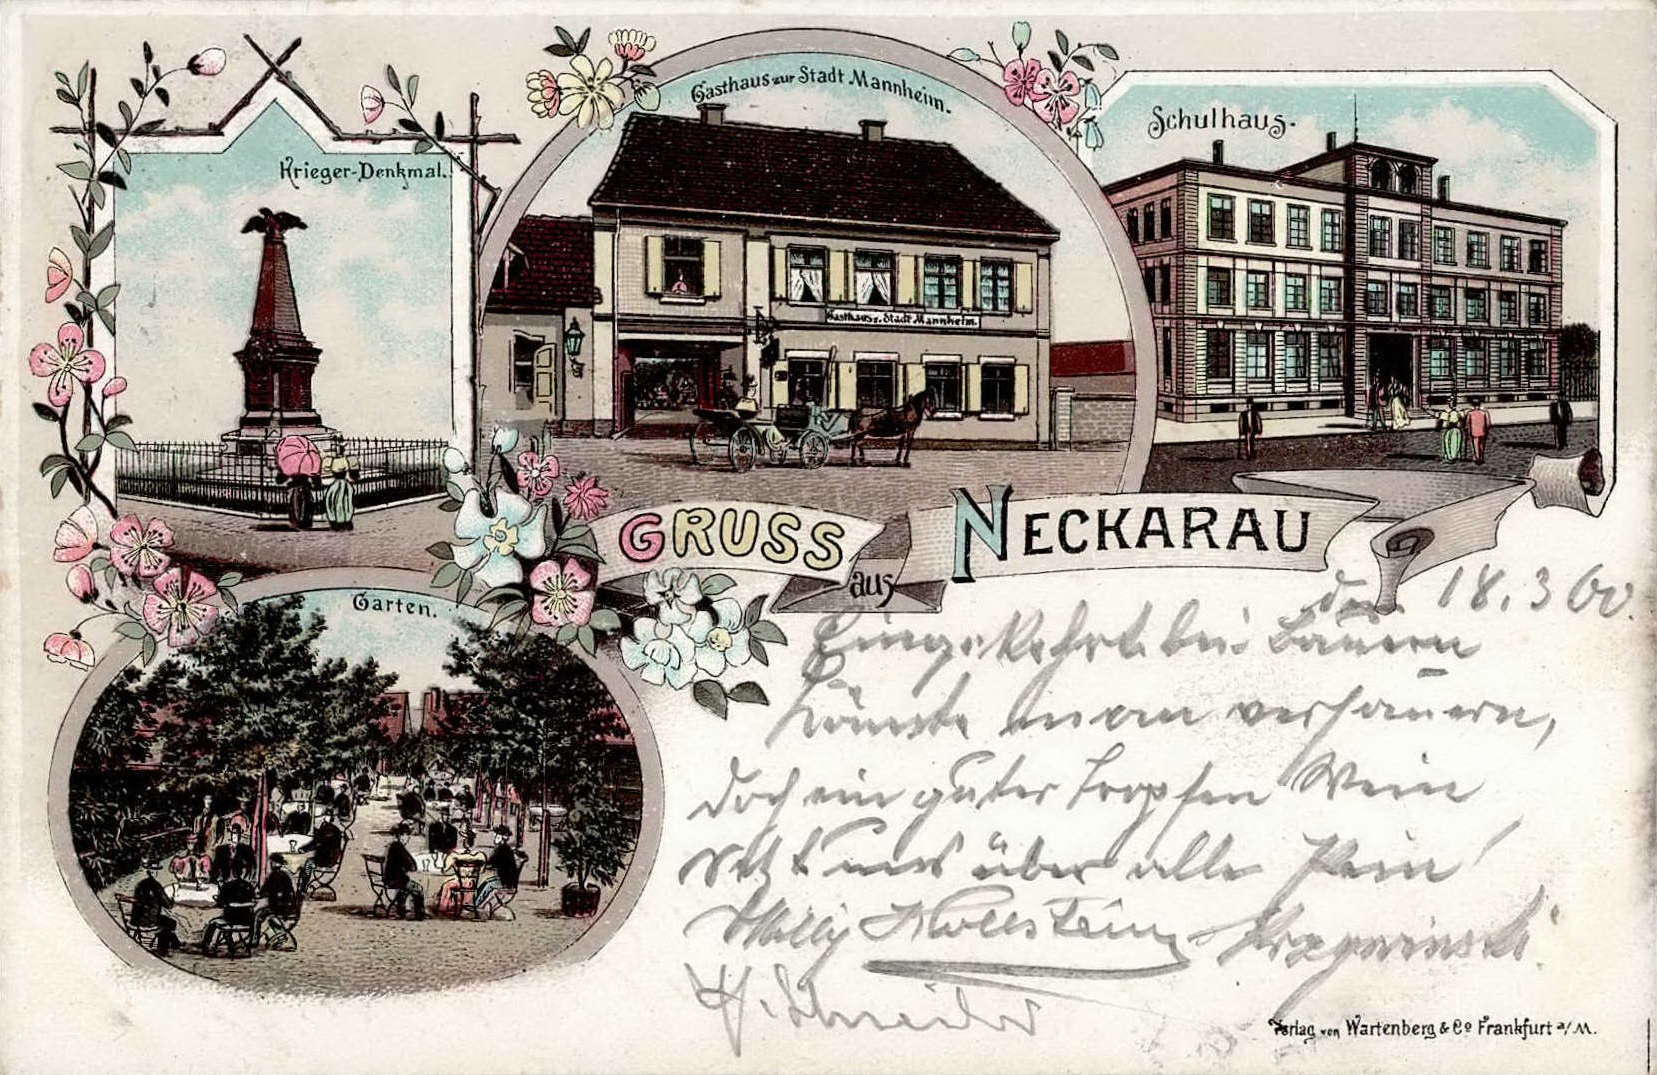 Krieger-Denkmal.
Gasthaus zur Stadt Mannheim.
Schulhaus.
Gasthaus z. Stadt Mannheim.
GRUSS
aus
NECKARAU
Garten.
den 18. 3 00.
Eingekehrt bei Bauern
könnte man versauern,
doch ein guter Tropfen Wein
setzt uns über alle Pein!
Willy
H. Schneider
Verlag von Wartenberg & Co Frankfurt a/M.